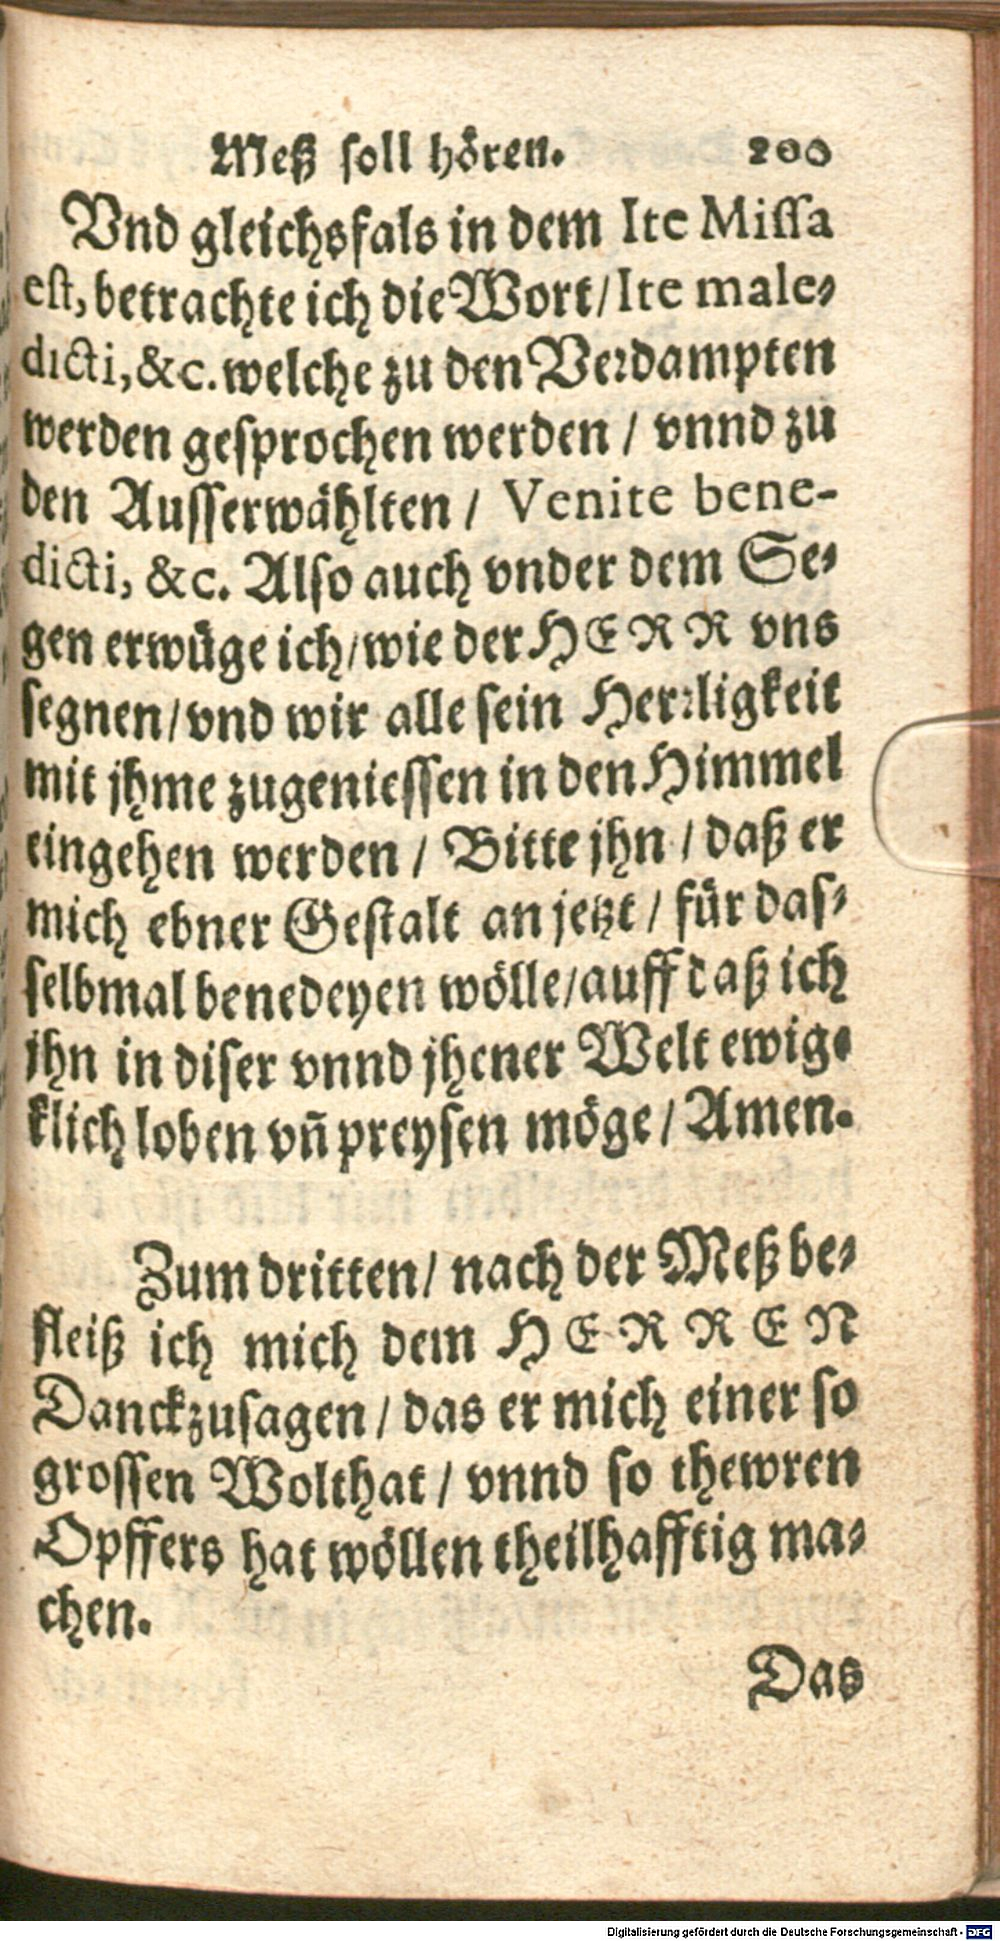 Meß soll hören. 200
Vnd gleichsfals in dem Ite Missa
est, betrachte ich die Wort/Ite male-
dicti, &c. welche zu den Verdampten
werden gesprochen werden / vnnd zu
den Ausserwählten / Venite bene-
dicti, &c. Also auch vnder dem Se-
gen erwüge ich/wie der HERR vns
segnen/vnd wir alle sein Herrligkeit
mit jhme zugeniessen in den Himmel
eingehen werden / Bitte jhn / daß er
mich ebner Gestalt an jetzt / für das-
selbmal benedeyen wölle/auff daß ich
jhn in diser vnnd jhener Welt ewig-
klich loben vñ preysen möge / Amen.
Zum dritten/ nach der Meß be-
fleiß ich mich dem HERREN
Danckzusagen / das er mich einer so
grossen Wolthat / vnnd so thewren
Opffers hat wöllen theilhafftig ma-
chen.
Das
Digitalisierung gefördert durch die Deutsche Forschungsgemeinschaft - DFG